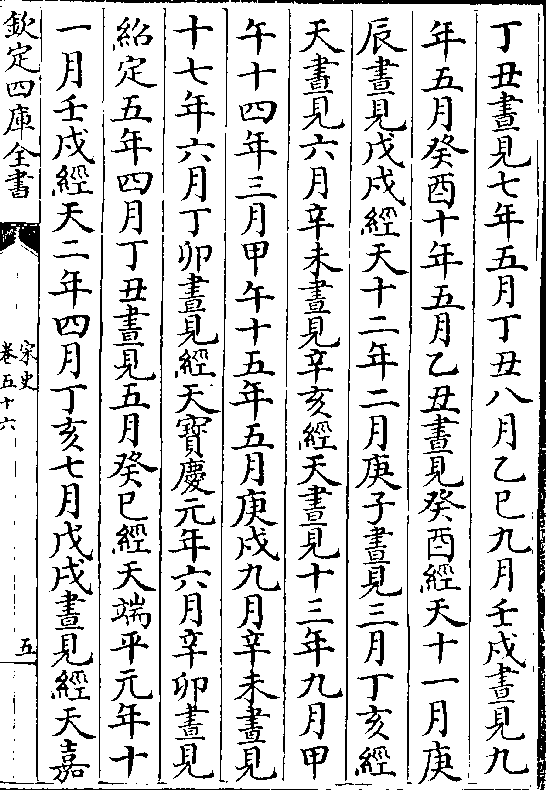 丁丑晝見七年五月丁丑八月乙巳九月壬戌晝見九
年五月癸酉十年五月乙丑晝見癸酉經天十一月庚
辰晝見戊戌經天十二年二月庚子晝見三月丁亥經
天晝見六月辛未晝見辛亥經天晝見十三年九月甲
午十四年三月甲午十五年五月庚戌九月辛未晝見
十七年六月丁卯晝見經天寶慶元年六月辛卯晝見
紹定五年四月丁丑晝見五月癸巳經天端平元年十
一月壬戌經天二年四月丁亥七月戊戌晝見經天嘉
欽定四庫全書
宋史
卷五十六
五